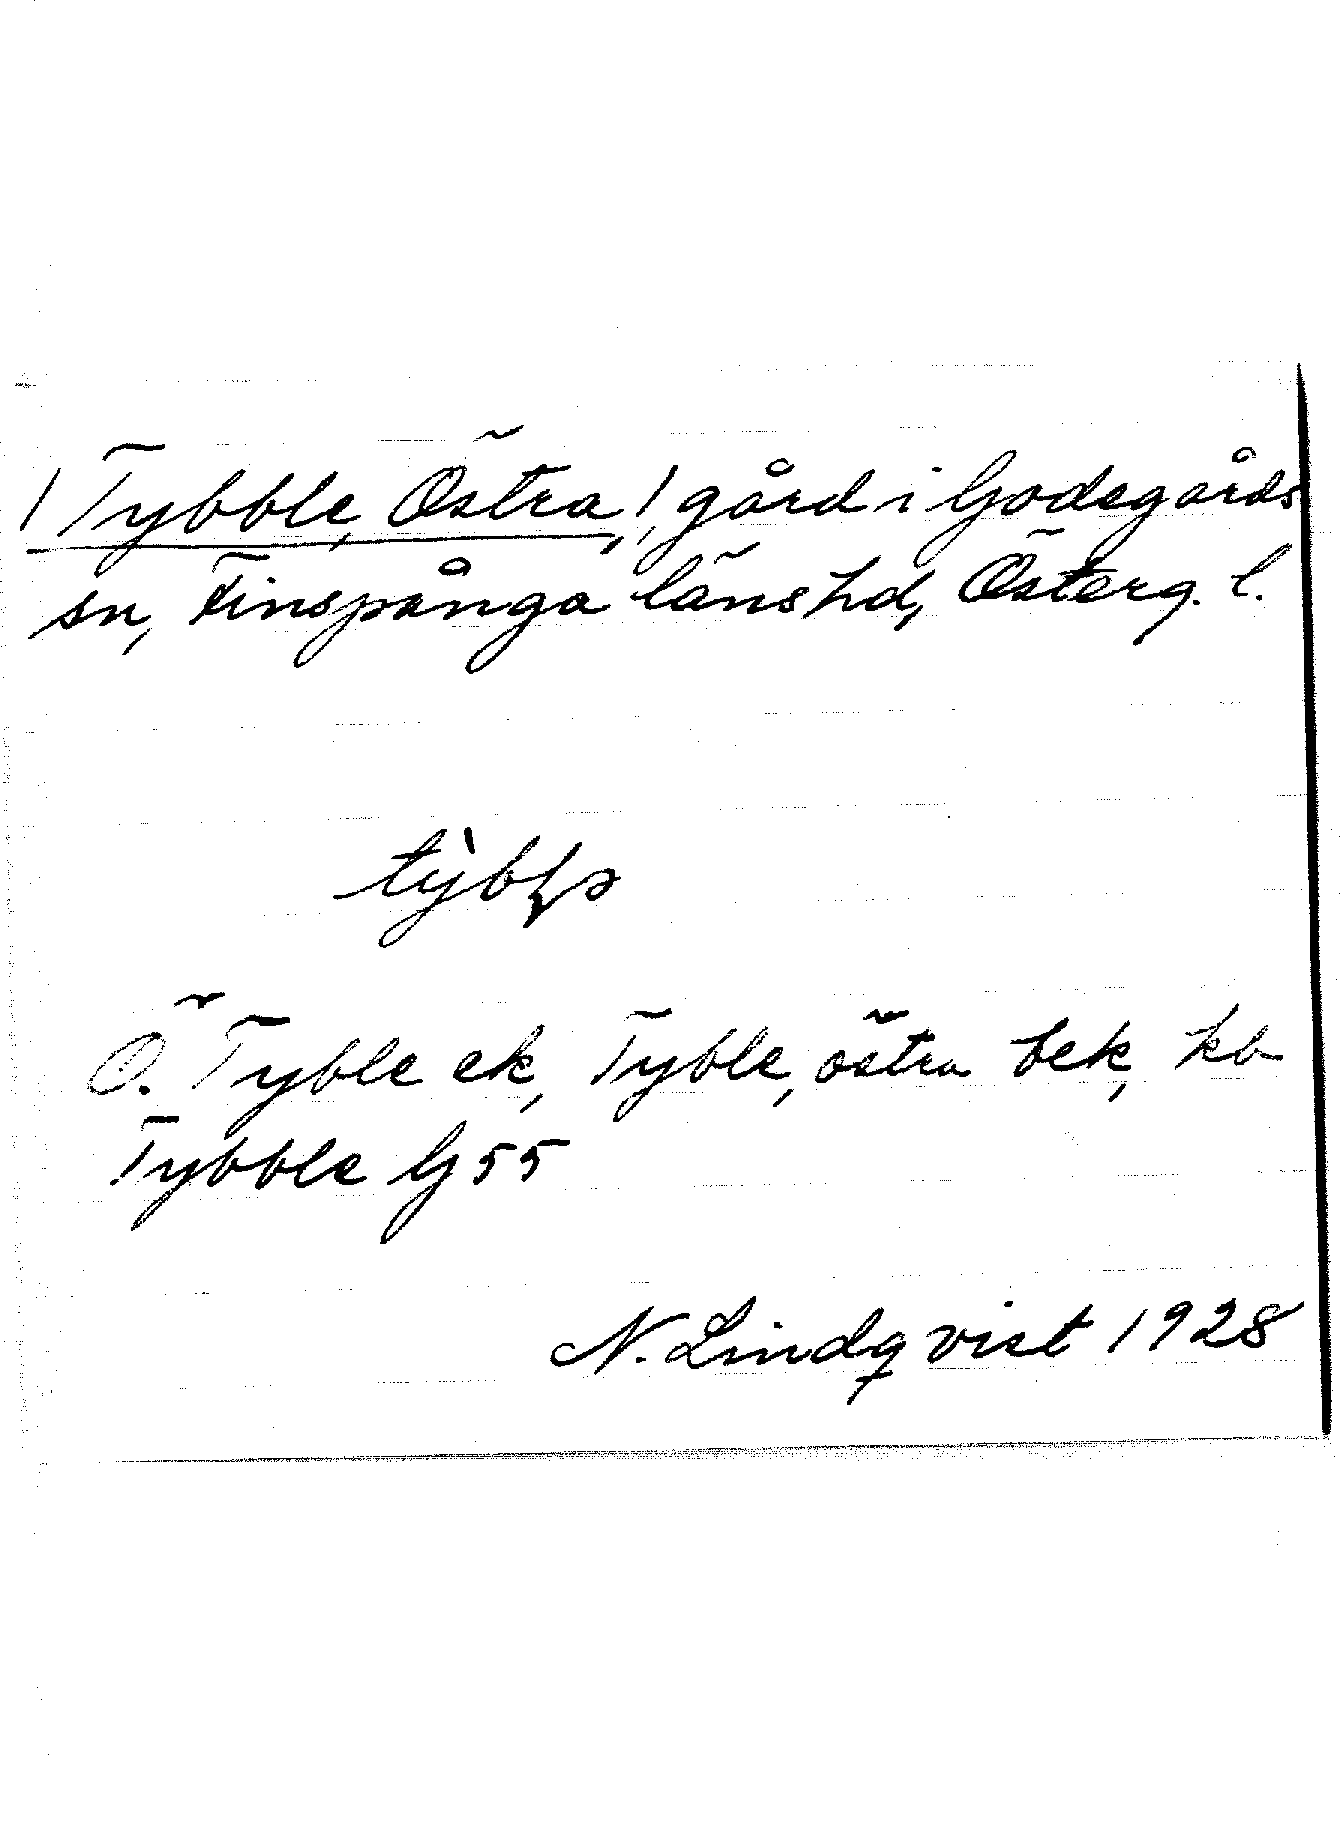 /Tybble, Östra,/ gård i Godegårds
sn, Finspånga läns hd, Österg. l.
tỳbḷə
Ö. Tyble ek, Tyble, östra bek, kb
Tybble G 55
N. Lindqvist 1928